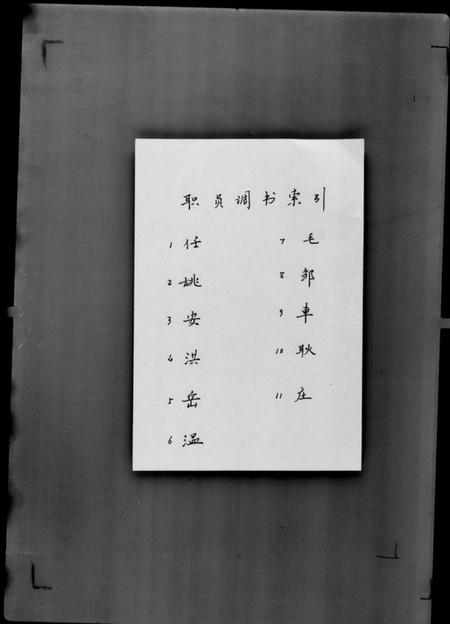 职员调书索引
1 任
2 姚
3 安
4 洪
5 岳
6 温
7 毛
8 邹
9 車
10 耿
11 庄